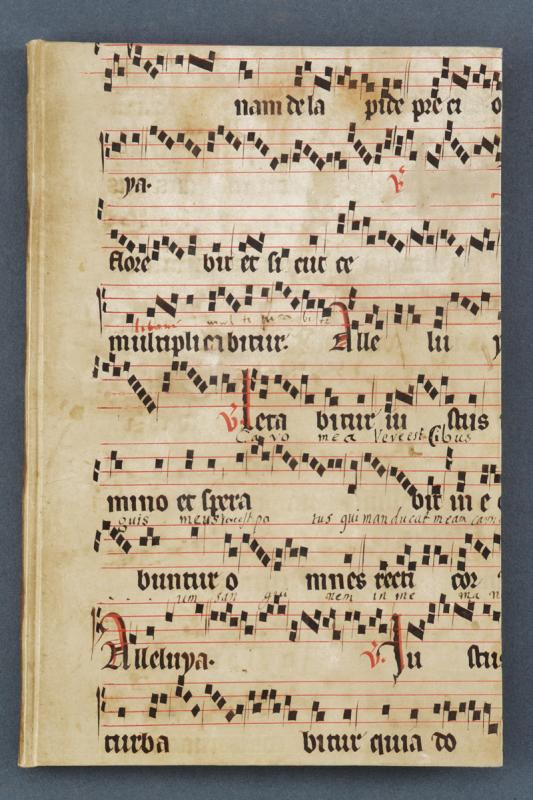 nam de la pide pre ci o
ya. ℣
flore bit et si cut ce
multipli cabitur. Alle lu y
℣. Leta bitur iu stus
Caro mea Vere est cibus
mino et spera bit in e
guis meus est po tus qui manducat meam carn
buntur o mnes recti cor
um san gui nem in me ma n
Alleluya. ℣. Iu stus
turba bitur quia do